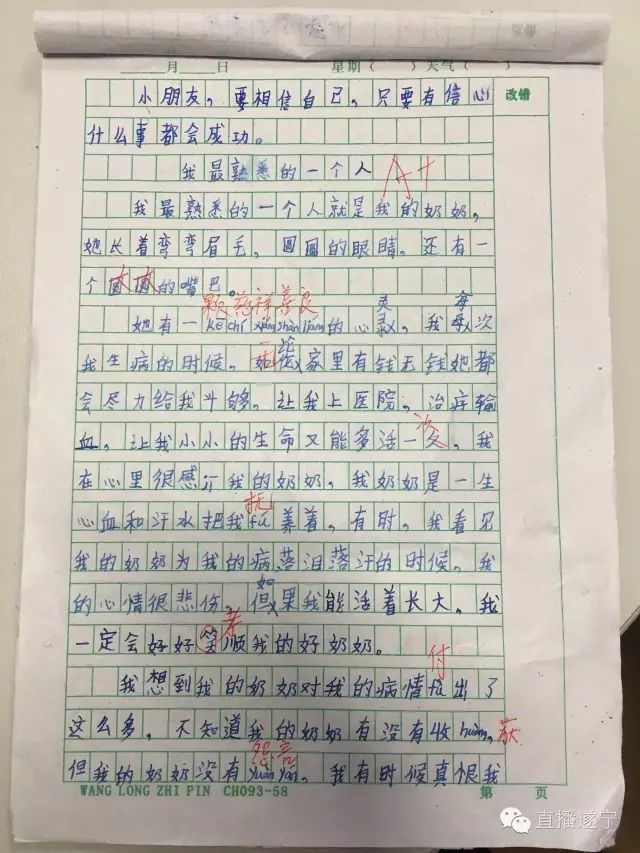 ____月____日 星期（ ）天气（ ）
改错
小朋友，要相信自己，只要有信心
什么事都会成功。
我最熟悉的一个人 A+
我最熟悉的一个人就是我的奶奶，
她长着弯弯眉毛，圆圆的眼睛。还有一
个圆圆的嘴巴。
颗慈祥善良 灵 每
她有一kē cí xiáng shàn liáng的心，我次
我生病的时候。论家里有钱无钱她都
会尽力给我斗够，让我上医院，治疗输
血，让我小小的生命又能多活一次，我
在心里很感的奶奶，我奶奶是一生
抚
心血和汗水把我fǔ养着，有时，我看见
我的奶奶为我的病落泪落汗的时候，我
如
的心情很悲伤，但果我能活着长大，我
孝
一定会好好笑顺我的好奶奶。
付
我想到我的奶奶对我的病情fù出了
这么多，不知道我的奶奶有没有收huàn，获
怨言
但我的奶奶没有yuàn yán，我有时候真恨我
WANG LONG ZHI PIN CH093-58 第 页
直播遂宁